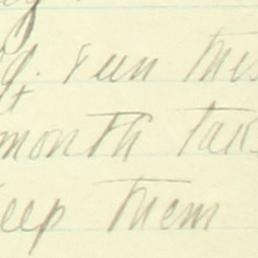 run this
month tak
eep them